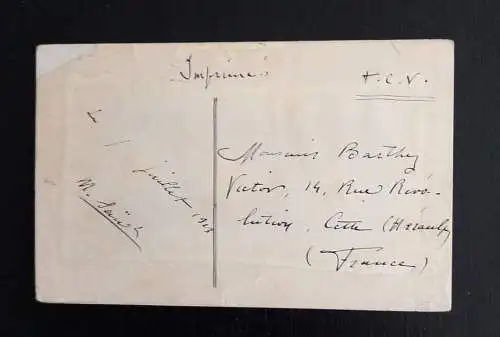 Imprimés
T.C.V.
Le 1 juillet 1913
Monsieur Barthez
Victor, 14, Rue Révo-
lution, Cette (Hérault)
(France)